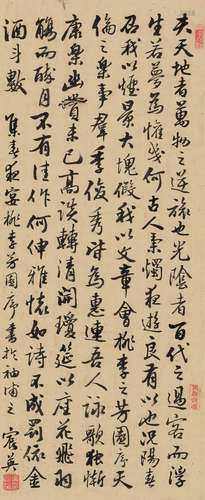 夫天地者萬物之逆旅也光陰者百代之過客而浮
生若夢為懽幾何古人秉燭夜遊良有以也況陽春
召我以煙景大塊假我以文章會桃李之芳園序天
倫之樂事羣季俊秀皆為惠連吾人詠歌獨慚
康樂幽賞未已高談轉清開瓊筵以座花飛羽
觴而醉月不有佳作何伸雅懷如詩不成罰依金
酒斗數 春夜宴桃李芳園序書於袖浦之 英